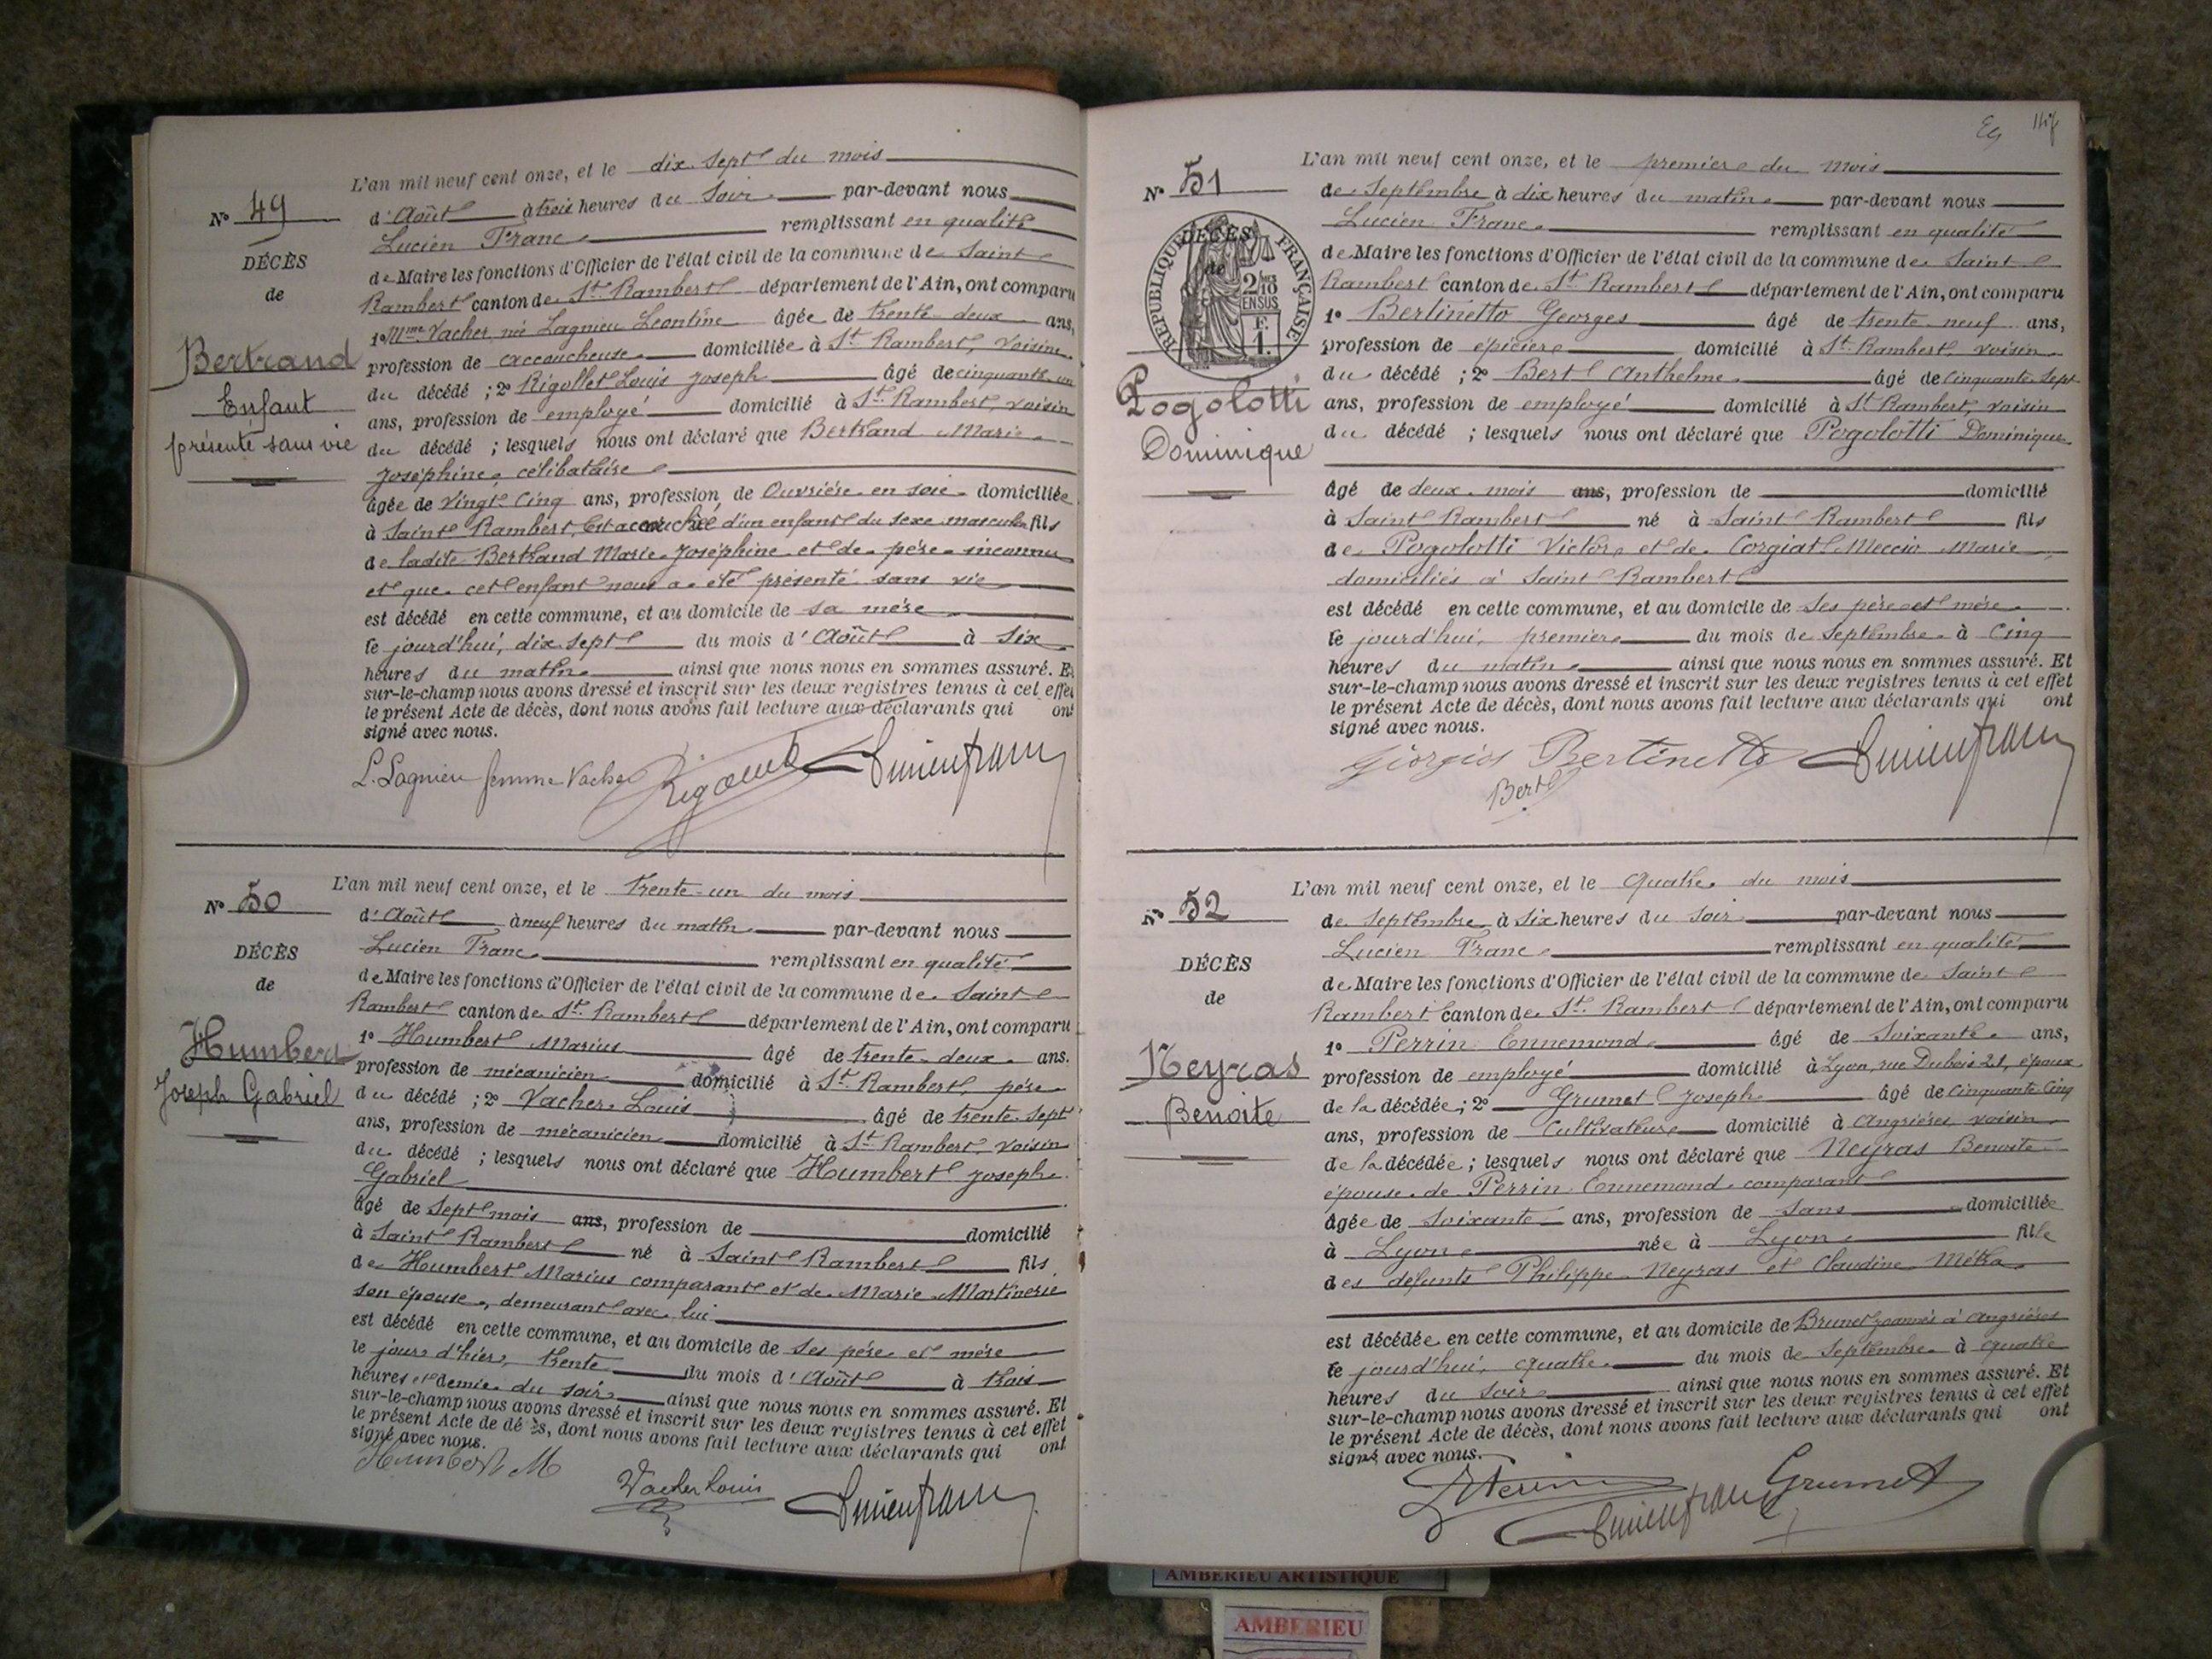 L'an mil neuf cent onze, et le dix sept du mois
N° 49
d'Août à trois heures du Soir par-devant nous
Lucien Franc remplissant en qualité
DÉCÈS
de Maire les fonctions d'Officier de l'état civil de la commune de Saint
de
Rambert canton de St Rambert département de l'Ain, ont comparu
1° Mme Vacher née Lagnieu Léontine âgée de trente deux ans,
Bertrand
profession de accoucheuse domiciliée à St Rambert, voisine
Enfant
du décédé ; 2° Rigollet Louis Joseph âgé de cinquante un
présenté sans vie
ans, profession de employé domicilié à St Rambert, voisin
du décédé ; lesquels nous ont déclaré que Bertrand Marie
Joséphine, célibataire
âgée de vingt cinq ans, profession de Ouvrière en soie domiciliée
à Saint Rambert, Est accouchée d'un enfant du sexe masculin fils
de ladite Bertrand Marie Joséphine et de père inconnu
et que cet enfant nous a été présenté sans vie
est décédé en cette commune, et au domicile de sa mère
le jourd'hui, dix sept du mois d'Août à Six
heures du matin ainsi que nous nous en sommes assuré. Et
sur-le-champ nous avons dressé et inscrit sur les deux registres tenus à cet effet
le présent Acte de décès, dont nous avons fait lecture aux déclarants qui ont
signé avec nous.
L. Lagnieu femme Vacher
L'an mil neuf cent onze, et le trente-un du mois
N° 50
d'Août à neuf heures du matin par-devant nous
Lucien Franc remplissant en qualité
DÉCÈS
de Maire les fonctions d'Officier de l'état civil de la commune de Saint
de
Rambert canton de St Rambert département de l'Ain, ont comparu
1° Humbert Marius âgé de trente-deux ans.
Humbert
profession de mécanicien domicilié à St Rambert, père
Joseph Gabriel
du décédé ; 2° Vacher Louis âgé de trente sept
ans, profession de mécanicien domicilié à St Rambert, voisin
du décédé ; lesquels nous ont déclaré que Humbert Joseph
Gabriel
âgé de Sept mois ans, profession de domicilié
à Saint Rambert né à Saint Rambert fils
de Humbert Marius comparant et de Marie Martinerie
son épouse, demeurant avec lui
est décédé en cette commune, et au domicile de ses père et mère
le jour d'hier, trente du mois d'Août à trois
heures et demie du soir ainsi que nous nous en sommes assuré. Et
sur-le-champ nous avons dressé et inscrit sur les deux registres tenus à cet effet
le présent Acte de décès, dont nous avons fait lecture aux déclarants qui ont
signé avec nous.
Humbert M
Vacher Louis
L'an mil neuf cent onze, et le premier du mois
N° 51
de Septembre à dix heures du matin par-devant nous
Lucien Franc remplissant en qualité
RÉPUBLIQUE FRANÇAISE
DÉCÈS
de
2/10
EN SUS
F.
1.
de Maire les fonctions d'Officier de l'état civil de la commune de Saint
Rambert canton de St Rambert département de l'Ain, ont comparu
1° Bertinetto Georges âgé de trente neuf ans,
profession de épicier domicilié à St Rambert, voisin
du décédé ; 2° Bert Anthelme âgé de cinquante sept
Pogolotti
ans, profession de employé domicilié à St Rambert, voisin
Dominique
du décédé ; lesquels nous ont déclaré que Pogolotti Dominique
âgé de deux mois ans, profession de domicilié
à Saint Rambert né à Saint Rambert fils
de Pogolotti Victor et de Corgiat Meccio Marie
domiciliés à Saint Rambert
est décédé en cette commune, et au domicile de Ses père et mère
le jourd'hui, premier du mois de Septembre à Cinq
heures du matin ainsi que nous nous en sommes assuré. Et
sur-le-champ nous avons dressé et inscrit sur les deux registres tenus à cet effet
le présent Acte de décès, dont nous avons fait lecture aux déclarants qui ont
signé avec nous.
Giorgios Bertinetto
Bert
L'an mil neuf cent onze, et le Quatre du mois
N° 52
de Septembre à Six heures du Soir par-devant nous
Lucien Franc remplissant en qualité
DÉCÈS
de Maire les fonctions d'Officier de l'état civil de la commune de Saint
de
Rambert canton de St Rambert département de l'Ain, ont comparu
1° Perrin Ennemond âgé de Soixante ans,
Neyras
profession de employé domicilié à Lyon, rue Dubois 21, époux
Benoite
de la décédée ; 2° Grumet Joseph âgé de cinquante cinq
ans, profession de Cultivateur domicilié à Angrières voisin
de la décédée ; lesquels nous ont déclaré que Neyras Benoite
épouse de Perrin Ennemond comparant
âgée de Soixante ans, profession de Sans domiciliée
à Lyon née à Lyon fille
des défunts Philippe Neyras et Claudine Métra
est décédée en cette commune, et au domicile de Brunet Joannès à Angrières
le jourd'hui, quatre du mois de Septembre à quatre
heures du Soir ainsi que nous nous en sommes assuré. Et
sur-le-champ nous avons dressé et inscrit sur les deux registres tenus à cet effet
le présent Acte de décès, dont nous avons fait lecture aux déclarants qui ont
signé avec nous.
Grumet
AMBERIEU ARTISTIQUE
AMBERIEU